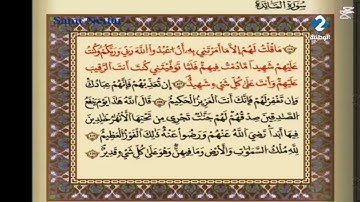 سُورَةُ المَائِدَة
2
الوطنية
مَا قُلْتُ لَهُمْ إِلَّا مَا أَمَرْتَنِي بِهِ أَنِ اعْبُدُوا اللَّهَ رَبِّي وَرَبَّكُمْ وَكُنتُ
عَلَيْهِمْ شَهِيدًا مَّا دُمْتُ فِيهِمْ فَلَمَّا تَوَفَّيْتَنِي كُنتَ أَنتَ الرَّقِيبَ
عَلَيْهِمْ وَأَنتَ عَلَى كُلِّ شَيْءٍ شَهِيدٌ إِن تُعَذِّبْهُمْ فَإِنَّهُمْ عِبَادُكَ
وَإِن تَغْفِرْ لَهُمْ فَإِنَّكَ أَنتَ الْعَزِيزُ الْحَكِيمُ قَالَ اللَّهُ هَذَا يَوْمُ يَنفَعُ
الصَّادِقِينَ صِدْقُهُمْ لَهُمْ جَنَّاتٌ تَجْرِي مِن تَحْتِهَا الْأَنْهَارُ خَالِدِينَ
فِيهَا أَبَدًا رَّضِيَ اللَّهُ عَنْهُمْ وَرَضُوا عَنْهُ ذَلِكَ الْفَوْزُ الْعَظِيمُ
لِلَّهِ مُلْكُ السَّمَوَاتِ وَالْأَرْضِ وَمَا فِيهِنَّ وَهُوَ عَلَى كُلِّ شَيْءٍ قَدِيرٌ